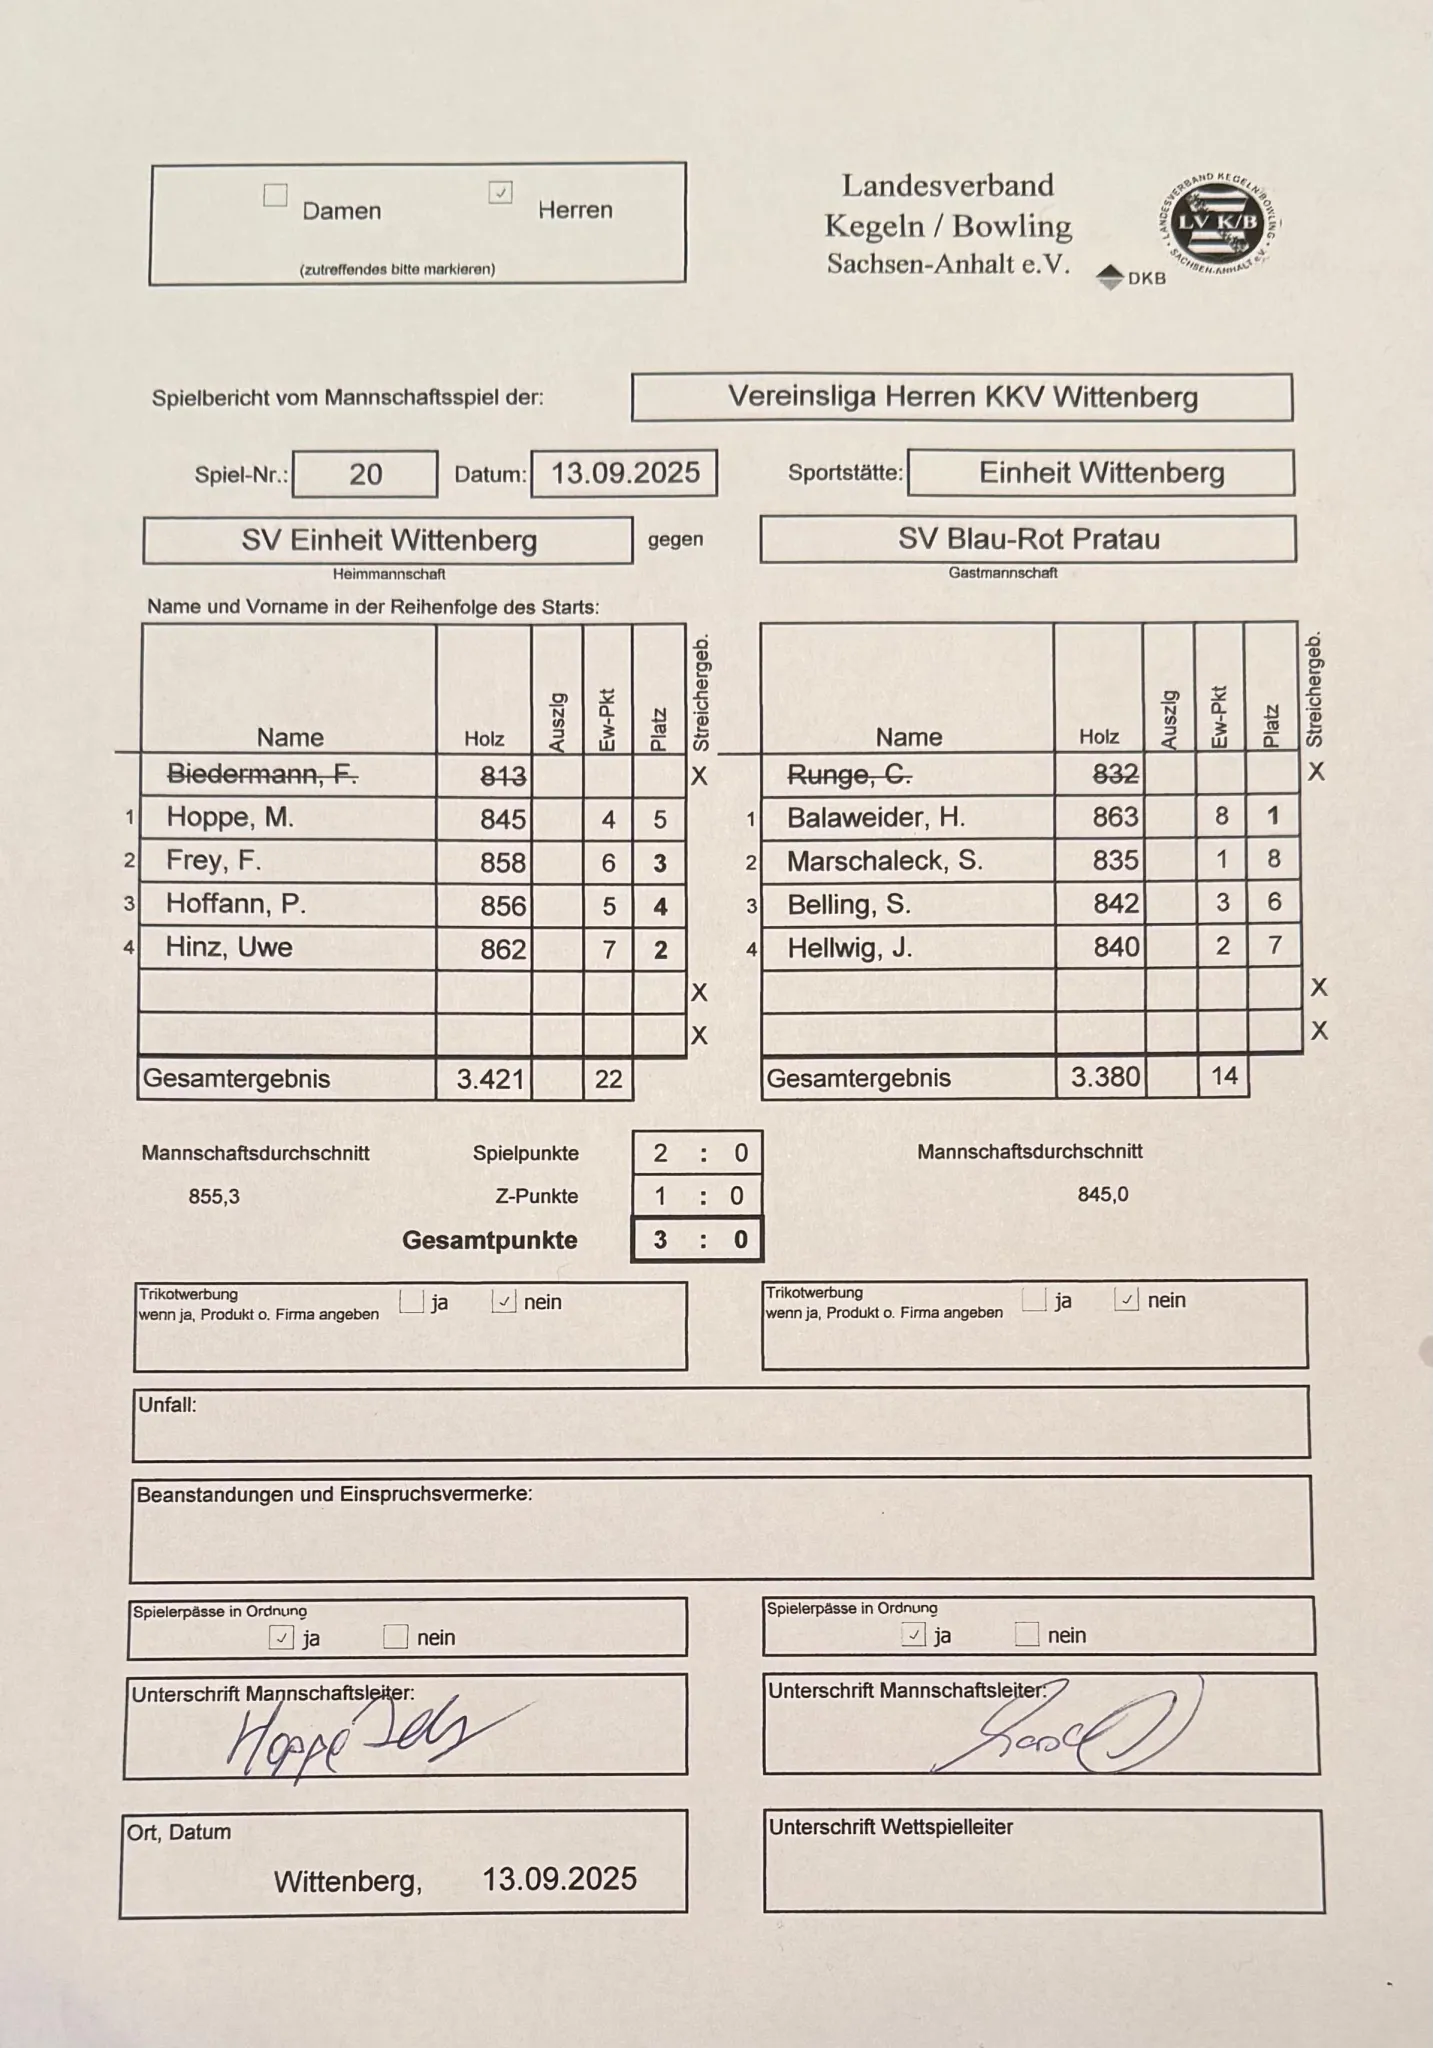 Damen ✓ Herren
(zutreffendes bitte markieren)
Landesverband
Kegeln / Bowling
Sachsen-Anhalt e.V.
DKB
LANDESVERBAND KEGELN/BOWLING
LV K/B
SACHSEN-ANHALT e.V.
Spielbericht vom Mannschaftsspiel der: Vereinsliga Herren KKV Wittenberg
Spiel-Nr.: 20 Datum: 13.09.2025 Sportstätte: Einheit Wittenberg
SV Einheit Wittenberg gegen SV Blau-Rot Pratau
Heimmannschaft Gastmannschaft
Name und Vorname in der Reihenfolge des Starts:
Name Holz Auszlg Ew-Pkt Platz Streichergeb. Name Holz Auszlg Ew-Pkt Platz Streichergeb.
Biedermann, F. 813 X Runge, C. 832 X
1 Hoppe, M. 845 4 5 1 Balaweider, H. 863 8 1
2 Frey, F. 858 6 3 2 Marschaleck, S. 835 1 8
3 Hoffann, P. 856 5 4 3 Belling, S. 842 3 6
4 Hinz, Uwe 862 7 2 4 Hellwig, J. 840 2 7
X X
X X
Gesamtergebnis 3.421 22 Gesamtergebnis 3.380 14
Mannschaftsdurchschnitt Spielpunkte 2 : 0 Mannschaftsdurchschnitt
855,3 Z-Punkte 1 : 0 845,0
Gesamtpunkte 3 : 0
Trikotwerbung ja ✓ nein Trikotwerbung ja ✓ nein
wenn ja, Produkt o. Firma angeben wenn ja, Produkt o. Firma angeben
Unfall:
Beanstandungen und Einspruchsvermerke:
Spielerpässe in Ordnung Spielerpässe in Ordnung
✓ ja nein ✓ ja nein
Unterschrift Mannschaftsleiter: Unterschrift Mannschaftsleiter:
Hoppe
Ort, Datum Unterschrift Wettspielleiter
Wittenberg, 13.09.2025